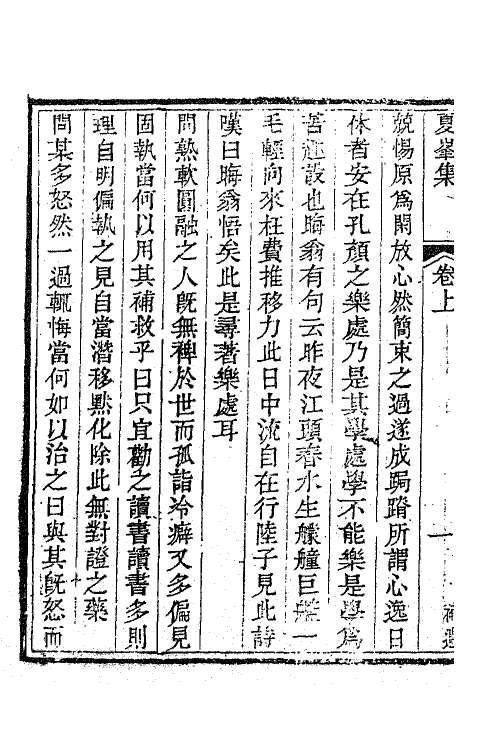 夏峯集
卷上
一
補遺
兢惕原爲閑放心然簡束之過遂成跼蹐所謂心逸日
休者安在孔顏之樂處乃是其學處學不能樂是學爲
苦趣設也晦翁有句云昨夜江頭春水生艨艟巨艦一
毛輕向來枉費推移力此日中流自在行陸子見此詩
嘆曰晦翁悟矣此是尋著樂處耳
問熟軟圓融之人旣無裨於世而孤詣冷癖又多偏見
固執當何以用其補救乎曰只宜勸之讀書讀書多則
理自明偏執之見自當潛移默化除此無對證之藥
問某多怒然一過輒悔當何如以治之曰與其旣怒而